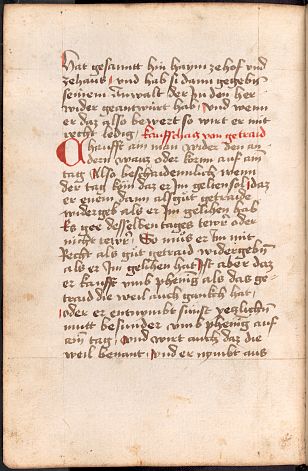 hat gesanntt hin haym ze hof vnd
zehaus / vnd hab si dann gegebn̄
seinem Anwalt der In den her
wider geantwurt hab / vnd wenn
er daz also bewert so wirt er mit
recht ledig / kauffschatz von getraid
Chaufft ain man wider den an
dern waitz oder korn auf ain
tag Also beschaidennlich wenn
der tag kom daz er Im gelten sol / daz
er enem dann als gut getraide
widergeb als er Im gelihen hab
Es gee desselben tages tewr oder
nicht tewr / So mus er Im mit
Recht als gut getraid widergebn̄
als er Im gelihen hat / Ist aber daz
er kaufft vmb phenig als das ge
traid die weil auch ganckh hat /
oder er entnymbt sunst yeglichn̄
mutt besunder vmb phenig auf
ain tag / vnd wirt auch daz die
weil benant / vnd er nymbt aus